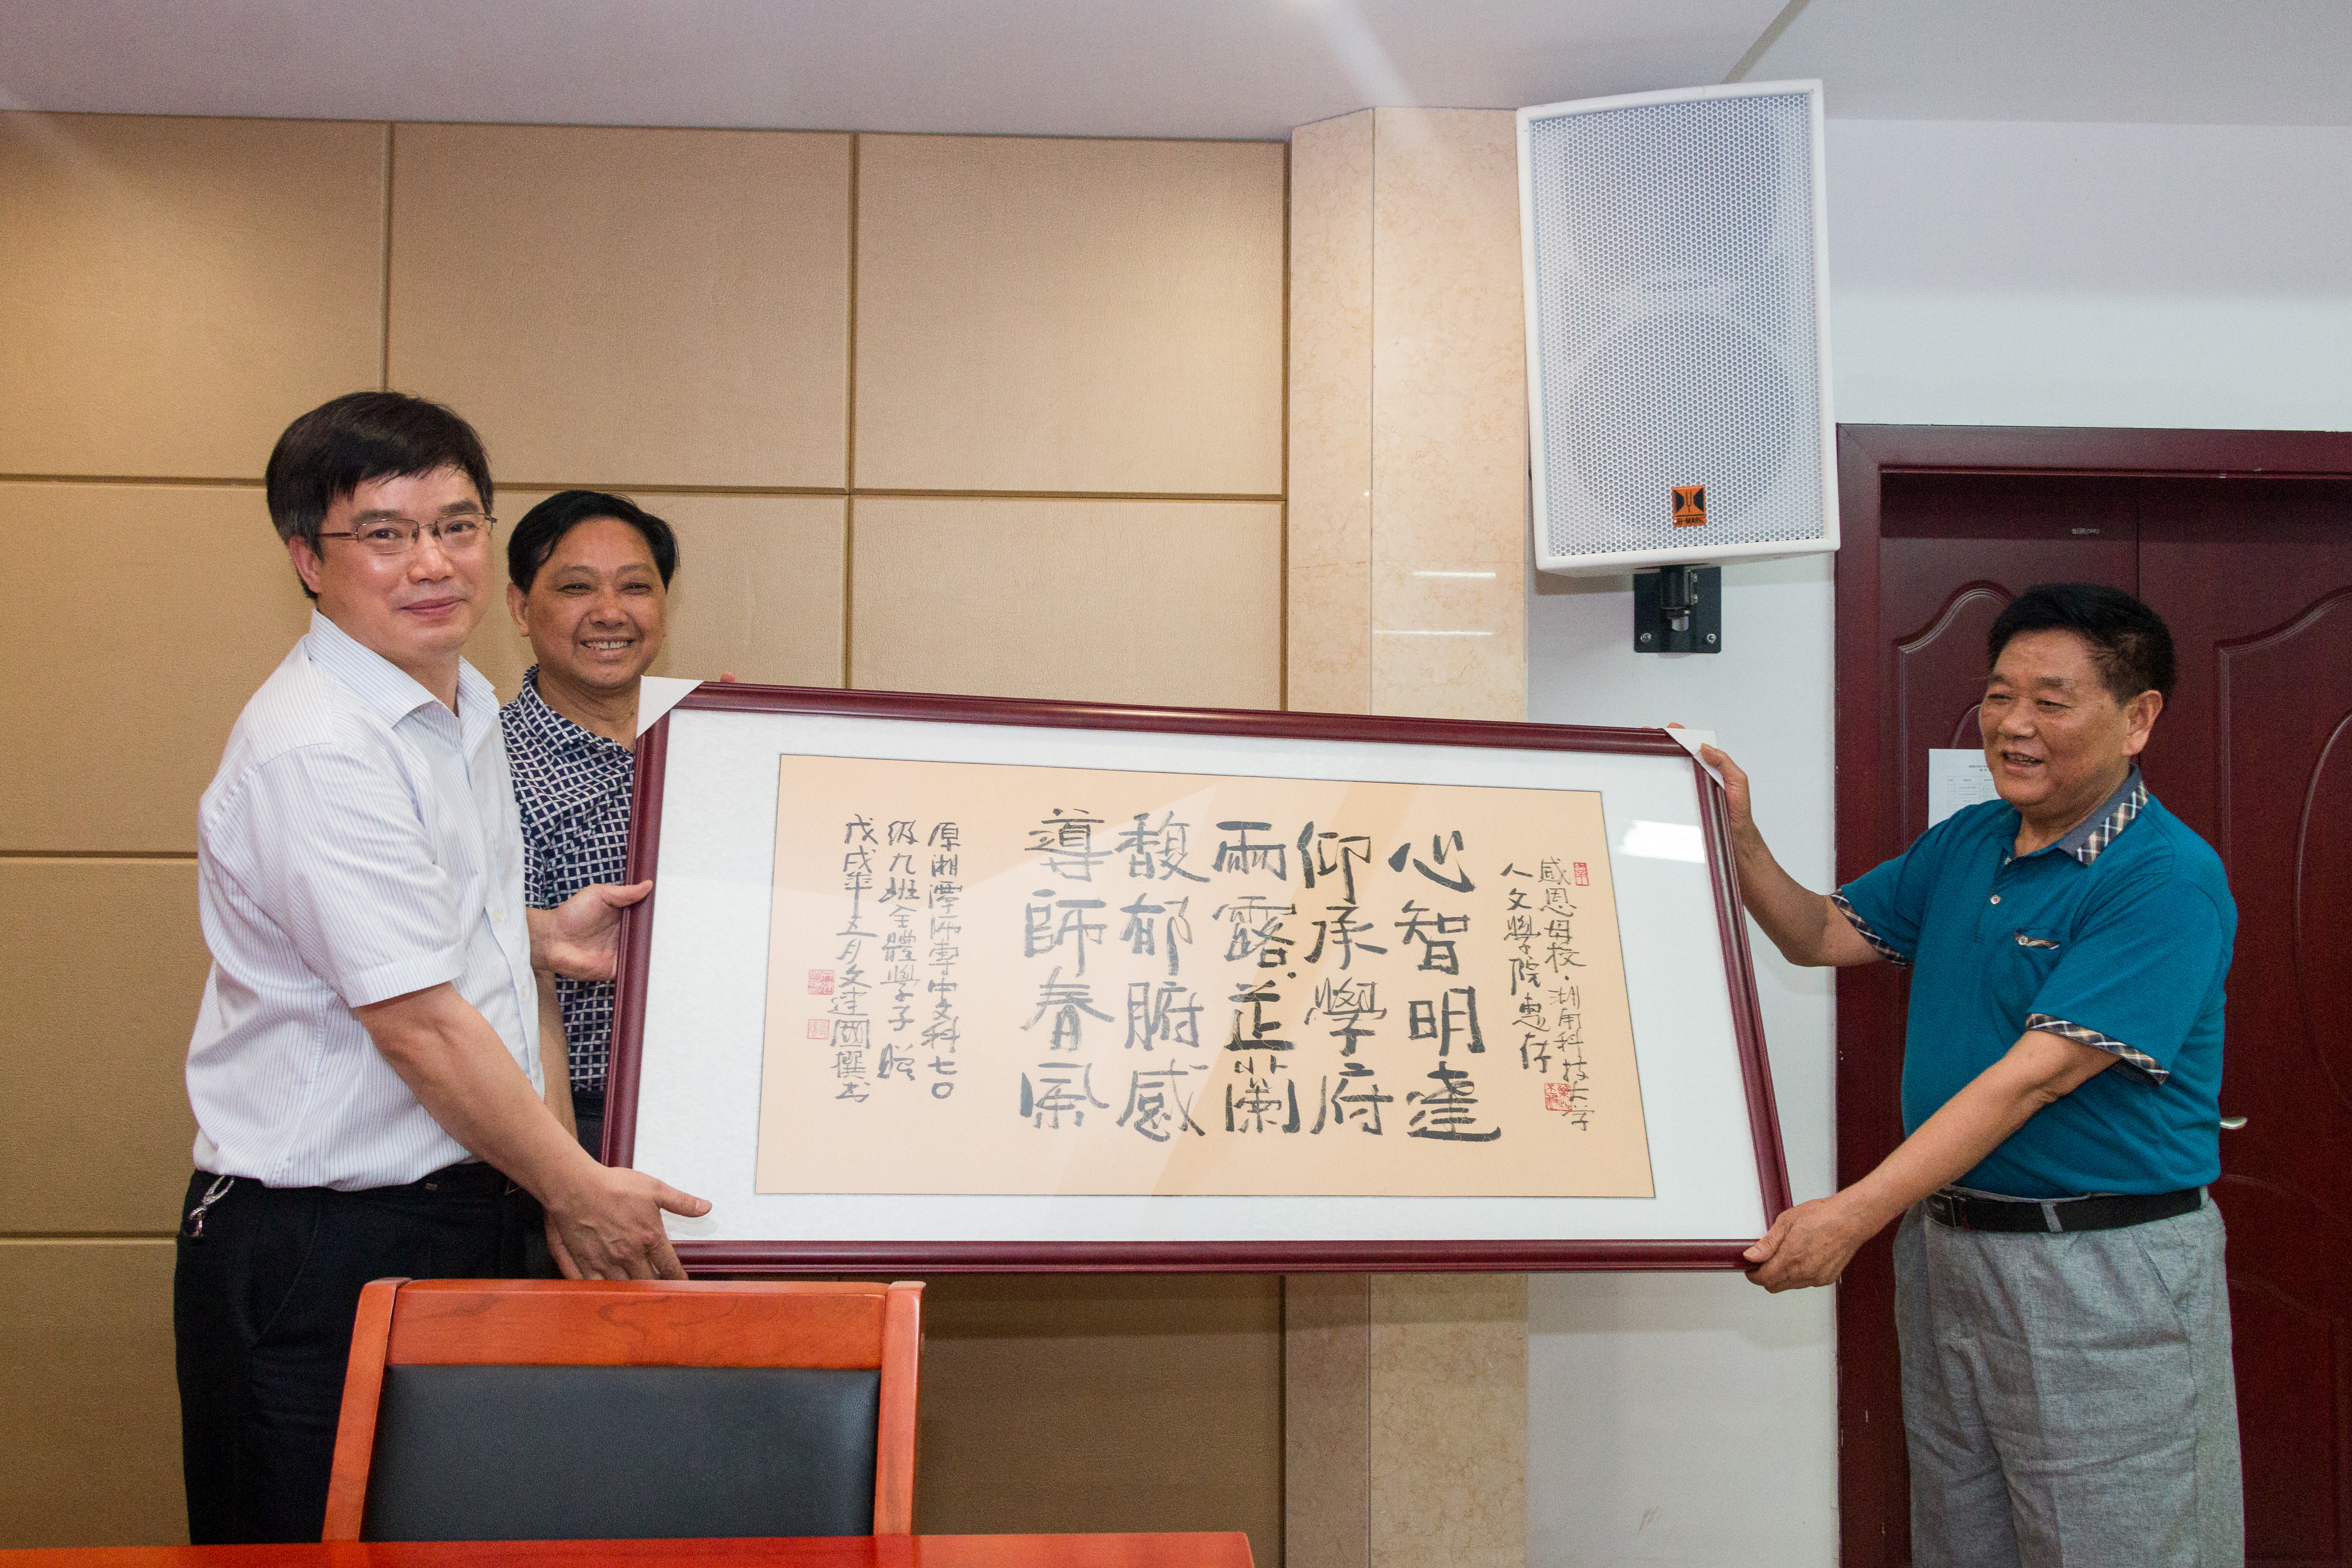 感恩母校·湖南科技大学
人文學院惠存
心智明達
仰承學府
雨露芷蘭
馥郁腑感
導師春風
原湘潭师専中文科七〇
级九班全體學子贈
戊戌年五月文建國撰书